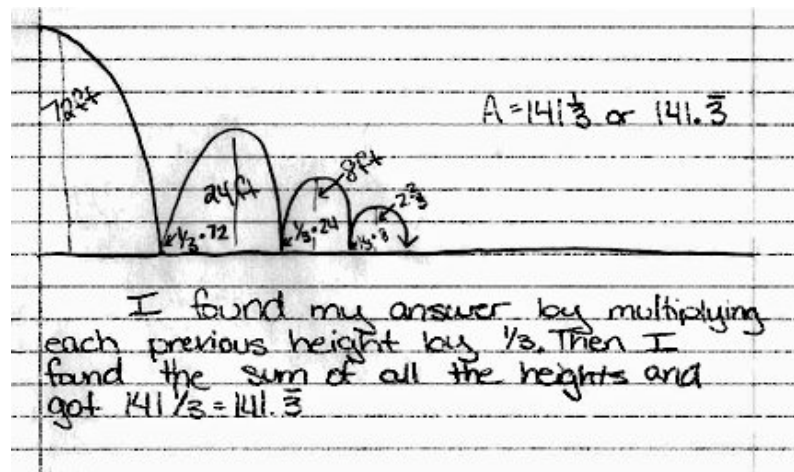 72ft
A = 141 1/3 or 141.3̅
8ft
2 2/3
24ft
1/3 • 72
1/3 • 24
1/3 • 8
I found my answer by multiplying
each previous height by 1/3. Then I
found the sum of all the heights and
got 141 1/3 = 141.3̅